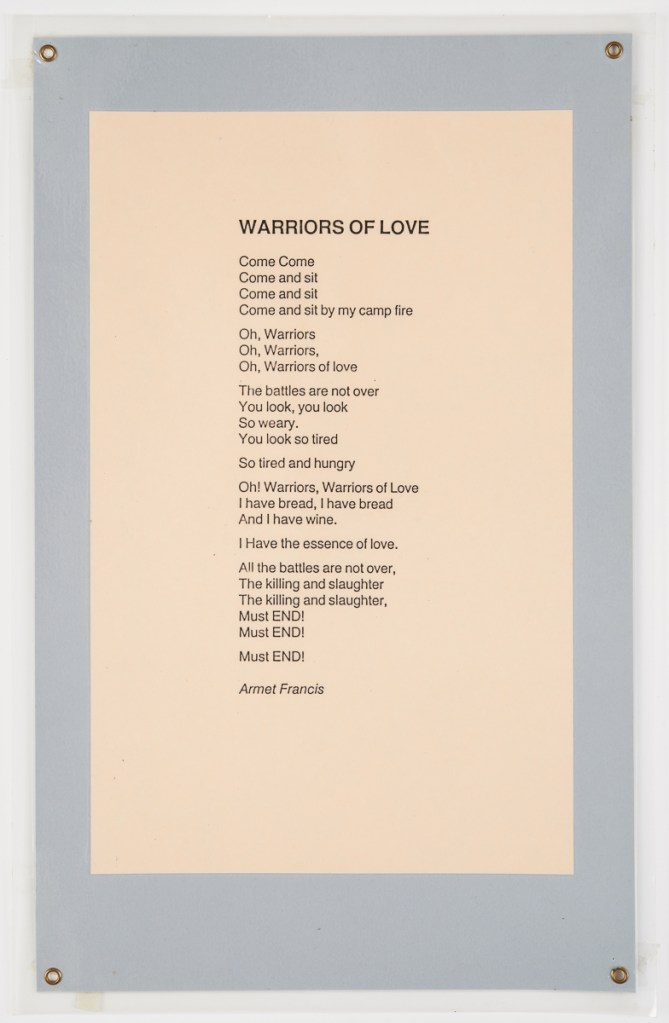 WARRIORS OF LOVE
Come Come
Come and sit
Come and sit
Come and sit by my camp fire
Oh, Warriors
Oh, Warriors,
Oh, Warriors of love
The battles are not over
You look, you look
So weary.
You look so tired
So tired and hungry
Oh! Warriors, Warriors of Love
I have bread, I have bread
And I have wine.
I Have the essence of love.
All the battles are not over,
The killing and slaughter
The killing and slaughter,
Must END!
Must END!
Must END!
Armet Francis